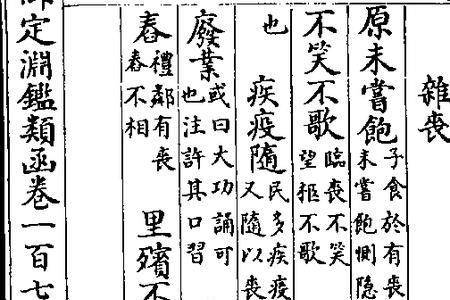 雜喪
原未嘗飽子食於有喪
未嘗飽惻隐
不笑不歌臨喪不笑
望柩不歌
也 疾疫隨民多疾疫
又隨以喪
廢業或曰大功誦可
也注許其口習
舂禮鄰有喪
舂不相 里殯不
定淵鑑類函卷一百七